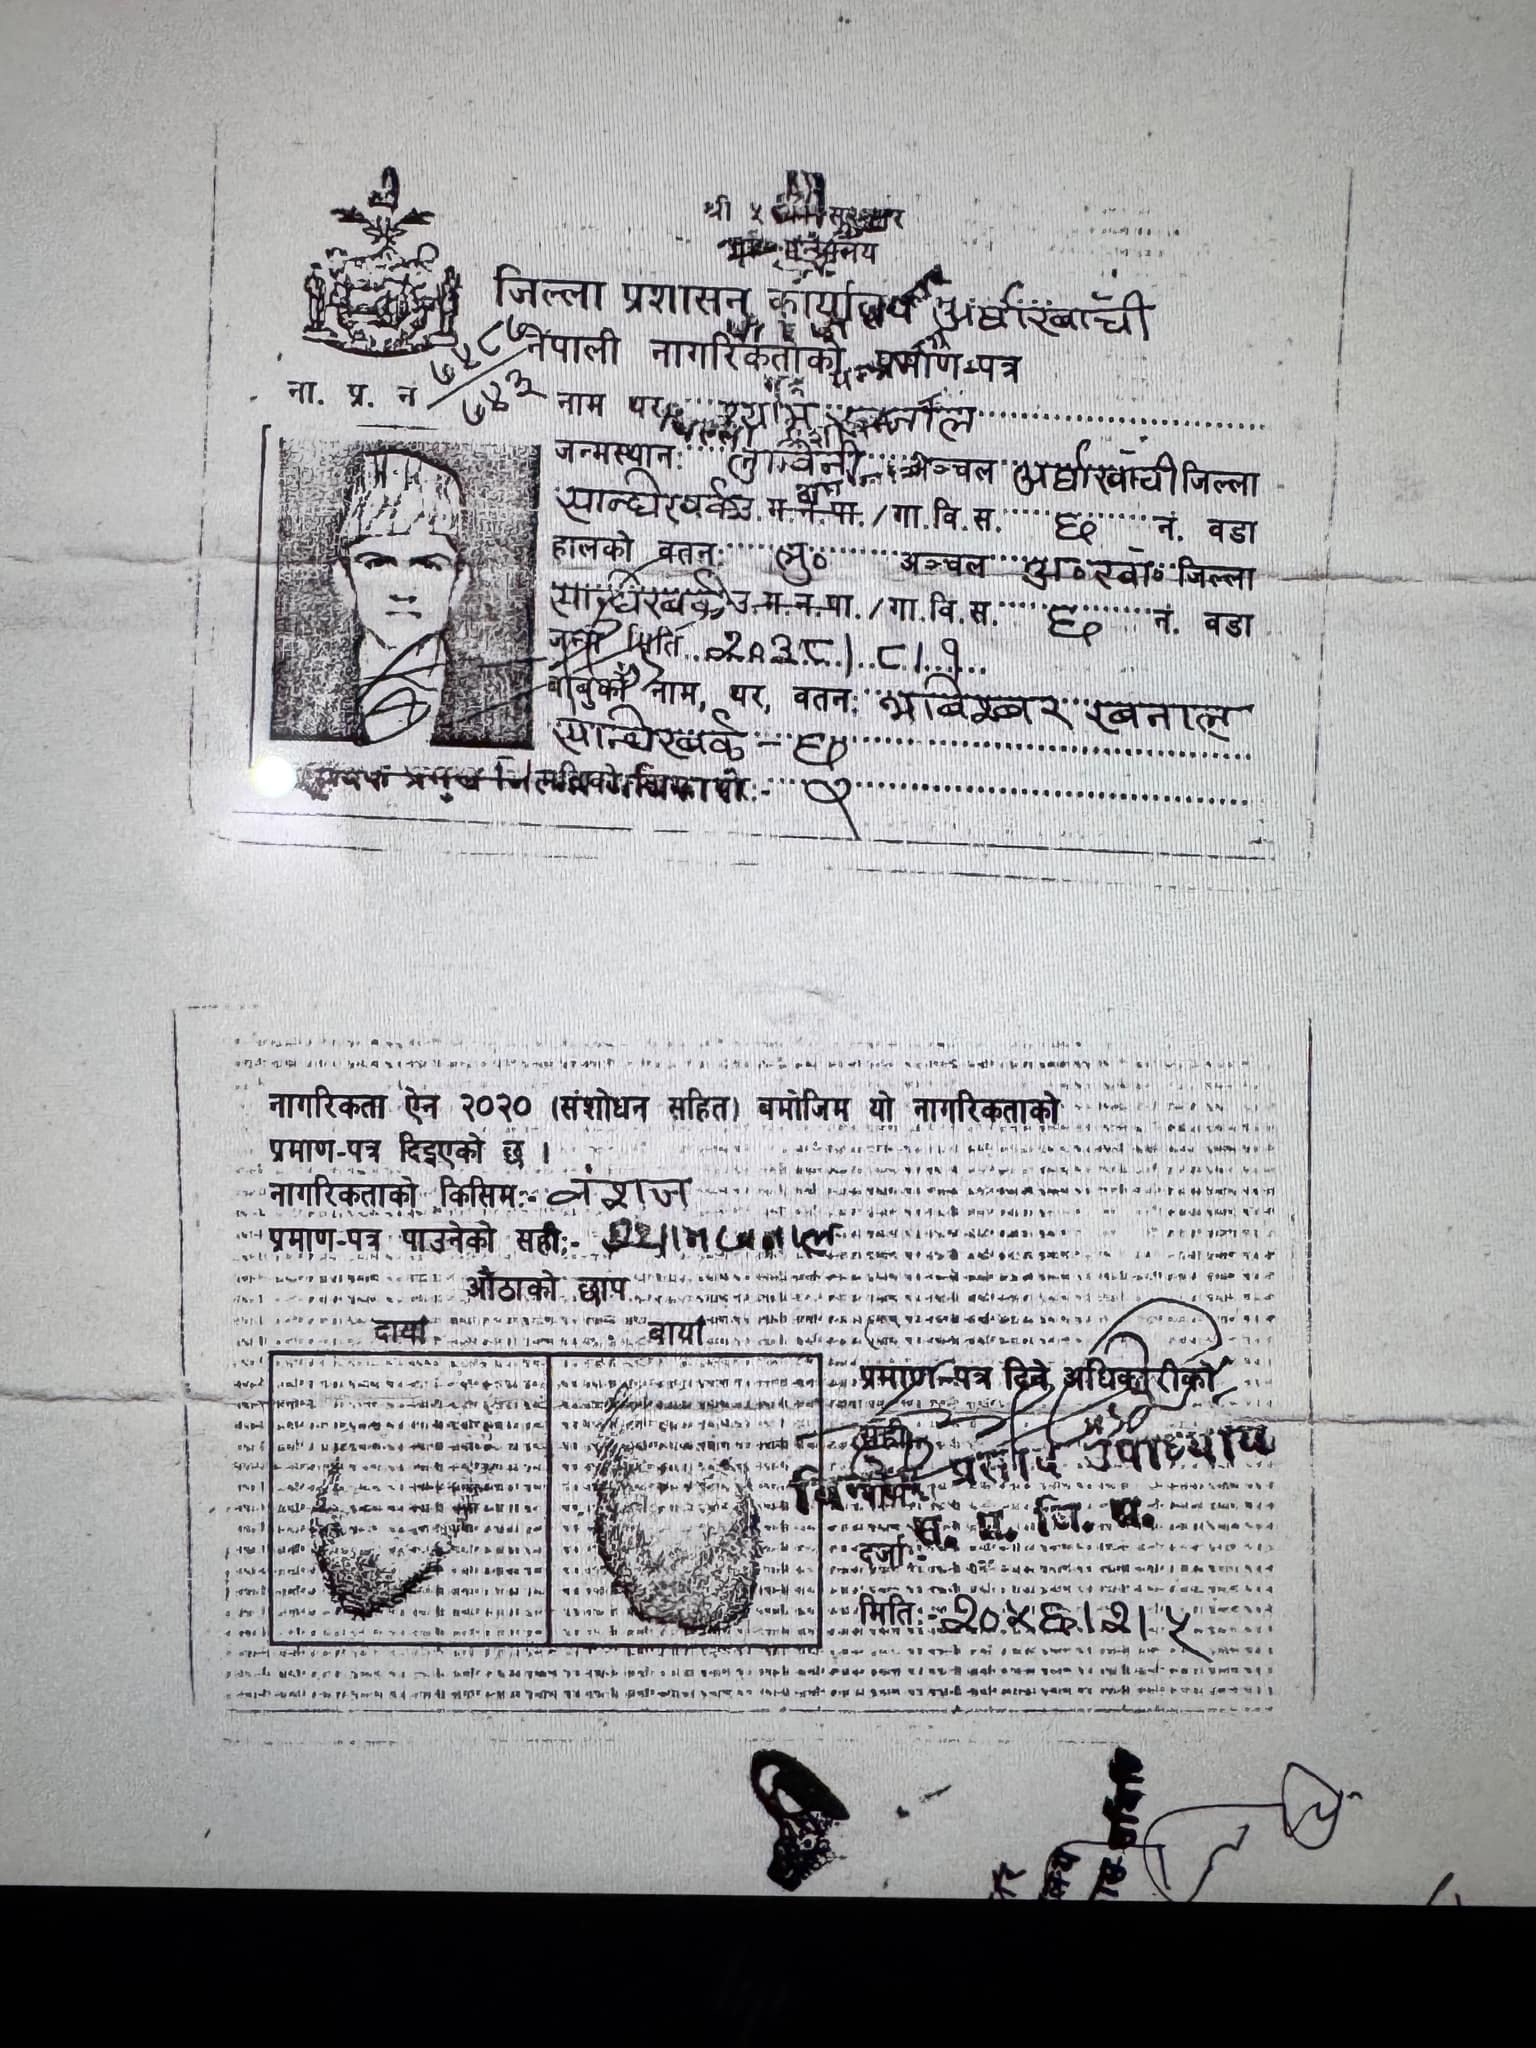 श्री ५
जिल्ला प्रशासन कार्यालय अर्घाखाँची
नेपाली नागरिकताको प्रमाण-पत्र
ना. प्र. नं
नाम थर: श्याम खनाल
जन्मस्थान: लुम्बिनी अञ्चल अर्घाखाँची जिल्ला
सान्धिखर्क उ.म.न.पा./गा.वि.स. ६ नं. वडा
हालको वतन: लु० अञ्चल अ०खाँ० जिल्ला
सान्धिखर्क उ.म.न.पा./गा.वि.स. ६ नं. वडा
जन्म मिति २०३८।८।१
बाबुको नाम, थर, वतन: खनाल
सान्धिखर्क - ६
नागरिकता ऐन २०२० (संशोधन सहित) बमोजिम यो नागरिकताको
प्रमाण-पत्र दिइएको छ ।
नागरिकताको किसिम:- वंशज
प्रमाण-पत्र पाउनेको सही:- श्याम खनाल
औंठाको छाप
दायाँ बायाँ
प्रमाण-पत्र दिने अधिकारीको
सही
प्रसाद उपाध्याय
दर्जा:- प्र. जि. अ.
मिति:- २०५६।२।५